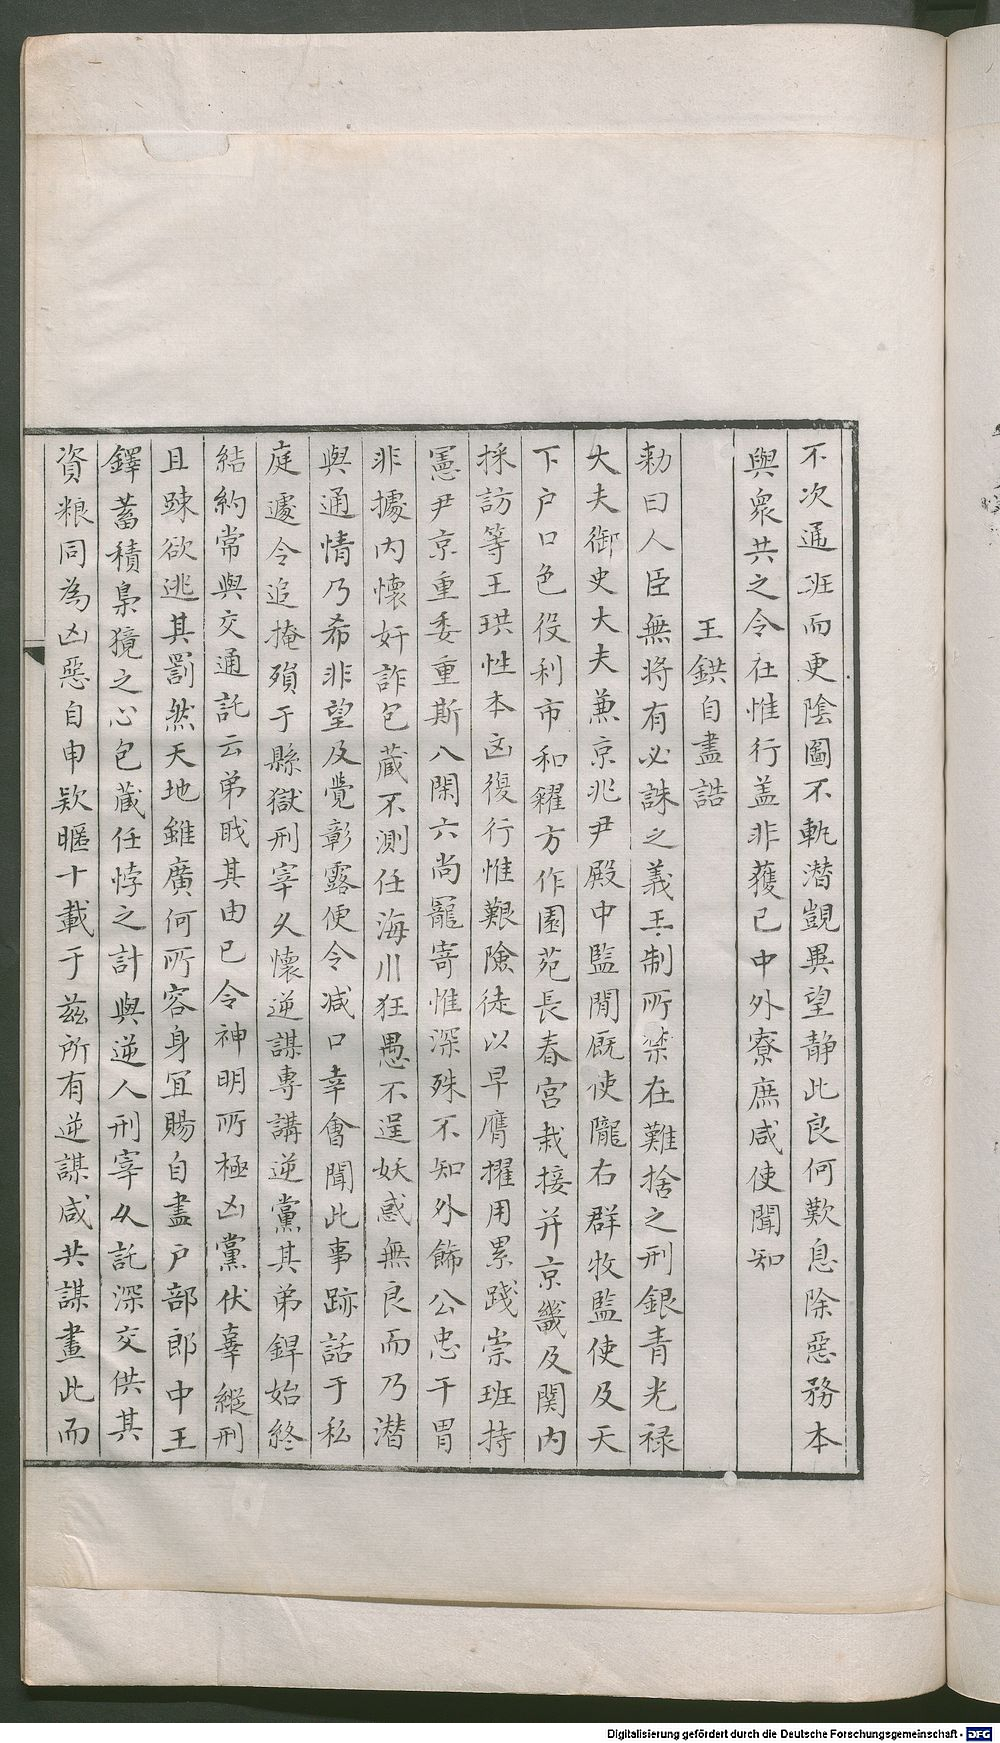 不次通班而更陰圖不軌潜覬異望静此良何歎息除惡務本
與衆共之令在惟行盖非獲已中外寮庶咸使聞知
王鉷自盡誥
勑曰人臣無將有必誅之義王制所禁在難捨之刑銀青光禄
大夫御史大夫兼京兆尹殿中監閒厩使隴右群牧監使及天
下户口色役利市和糴方作園苑長春宫栽接并京畿及関内
採訪等王珙性本凶復行惟艱險徒以早膺擢用累踐崇班持
憲尹京重委重斯八閑六尚寵寄惟深殊不知外飾公忠干冒
非據内懷奸詐包蔵不測任海川狂愚不逞妖惑無良而乃潜
與通情乃希非望及覺彰露便令減口幸會聞此事跡話于私
庭遽令追掩殞于縣獄刑宰久懷逆謀專講逆黨其弟銲始終
結約常與交通託云弟戝其由已令神明所極凶黨伏辜縱刑
且踈欲逃其罰然天地雖廣何所容身冝賜自盡户部郎中王
銲蓄積梟獍之心包蔵任悖之計與逆人刑宰久託深交供其
資粮同為凶惡自申欵暱十載于兹所有逆謀咸共謀畫此而
Digitalisierung gefördert durch die Deutsche Forschungsgemeinschaft - DFG